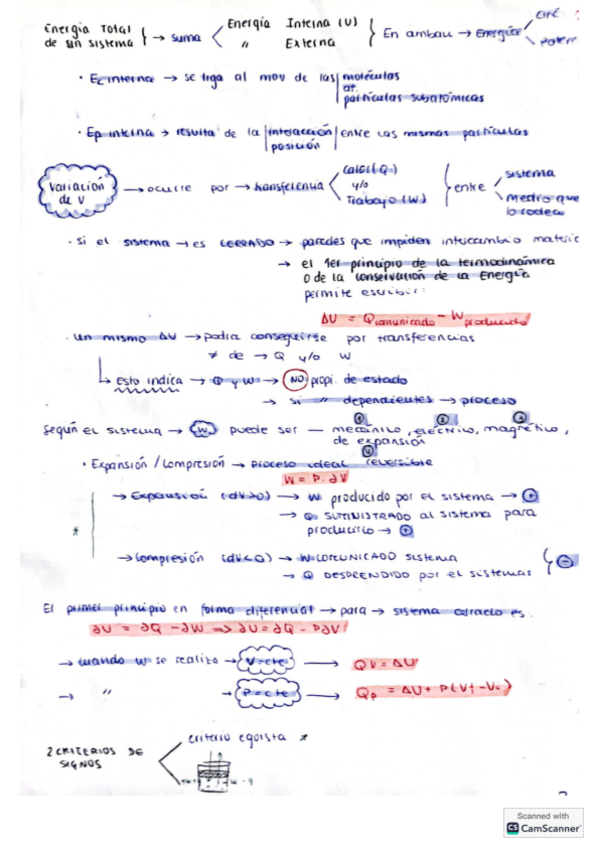 Energía Total
de un sistema } → suma < Energía Interna (U)
" Externa } En ambau → Energíce <
· Ec interna → se liga al mov de las | moléculas
at.
partículas subatómicas
· Ep interna → resulta de la | interacción | entre las mismas partículas
posición
Variación
de U → ocurre por → transferencia < calor (Q)
y/o
Trabajo (W) } entre < sistema
medio que
lo rodea
· si el sistema → es CERRADO → paredes que impiden intercambio materic
→ el 1er principio de la termodinámica
o de la conservación de la Energía
permite escribir:
ΔU = Qcomunicado - Wproducido
· un mismo ΔU → podría conseguirse por transferencias
≠ de → Q y/o W
↳ esto indica → Q y W → NO propi. de estado
→ si " dependientes → proceso
según el sistema → W puede ser — mecánico ①, eléctrico ②, magnético ③,
de expansión ④
· Expansión / Compresión → proceso ideal reversible
W = P.dV
* → Expansión (dV>0) → W producido por el sistema → +
→ Q SUMINISTRADO al sistema para
producirlo → +
→ Compresión (dV<0) → W COMUNICADO sistema
→ Q DESPRENDIDO por el sistemas } -
El primer principio en forma diferencial → para → sistema cerrado es.
∂U = ∂Q - ∂W => ∂U = ∂Q - P∂V
→ cuando W se realiza → V=cte → QV = ΔU
→ " → P=cte → Qp = ΔU + P(Vf-Vo)
2 CRITERIOS DE
SIGNOS < criterio egoísta *
Scanned with
CS CamScanner